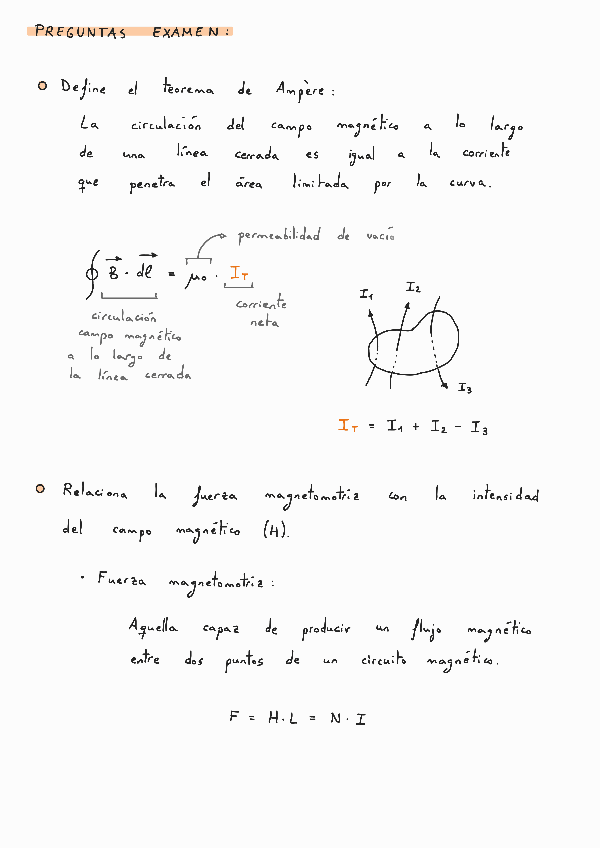 PREGUNTAS EXAMEN:
Define el teorema de Ampère:
La circulación del campo magnético a lo largo
de una línea cerrada es igual a la corriente
que penetra el área limitada por la curva.
permeabilidad de vacío
∮ B⃗ · dl⃗ = μ₀ · I_T
circulación
campo magnético
a lo largo de
la línea cerrada
corriente
neta
I₁ I₂
I₃
I_T = I₁ + I₂ - I₃
Relaciona la fuerza magnetomotriz con la intensidad
del campo magnético (H).
· Fuerza magnetomotriz:
Aquella capaz de producir un flujo magnético
entre dos puntos de un circuito magnético.
F = H·L = N·I